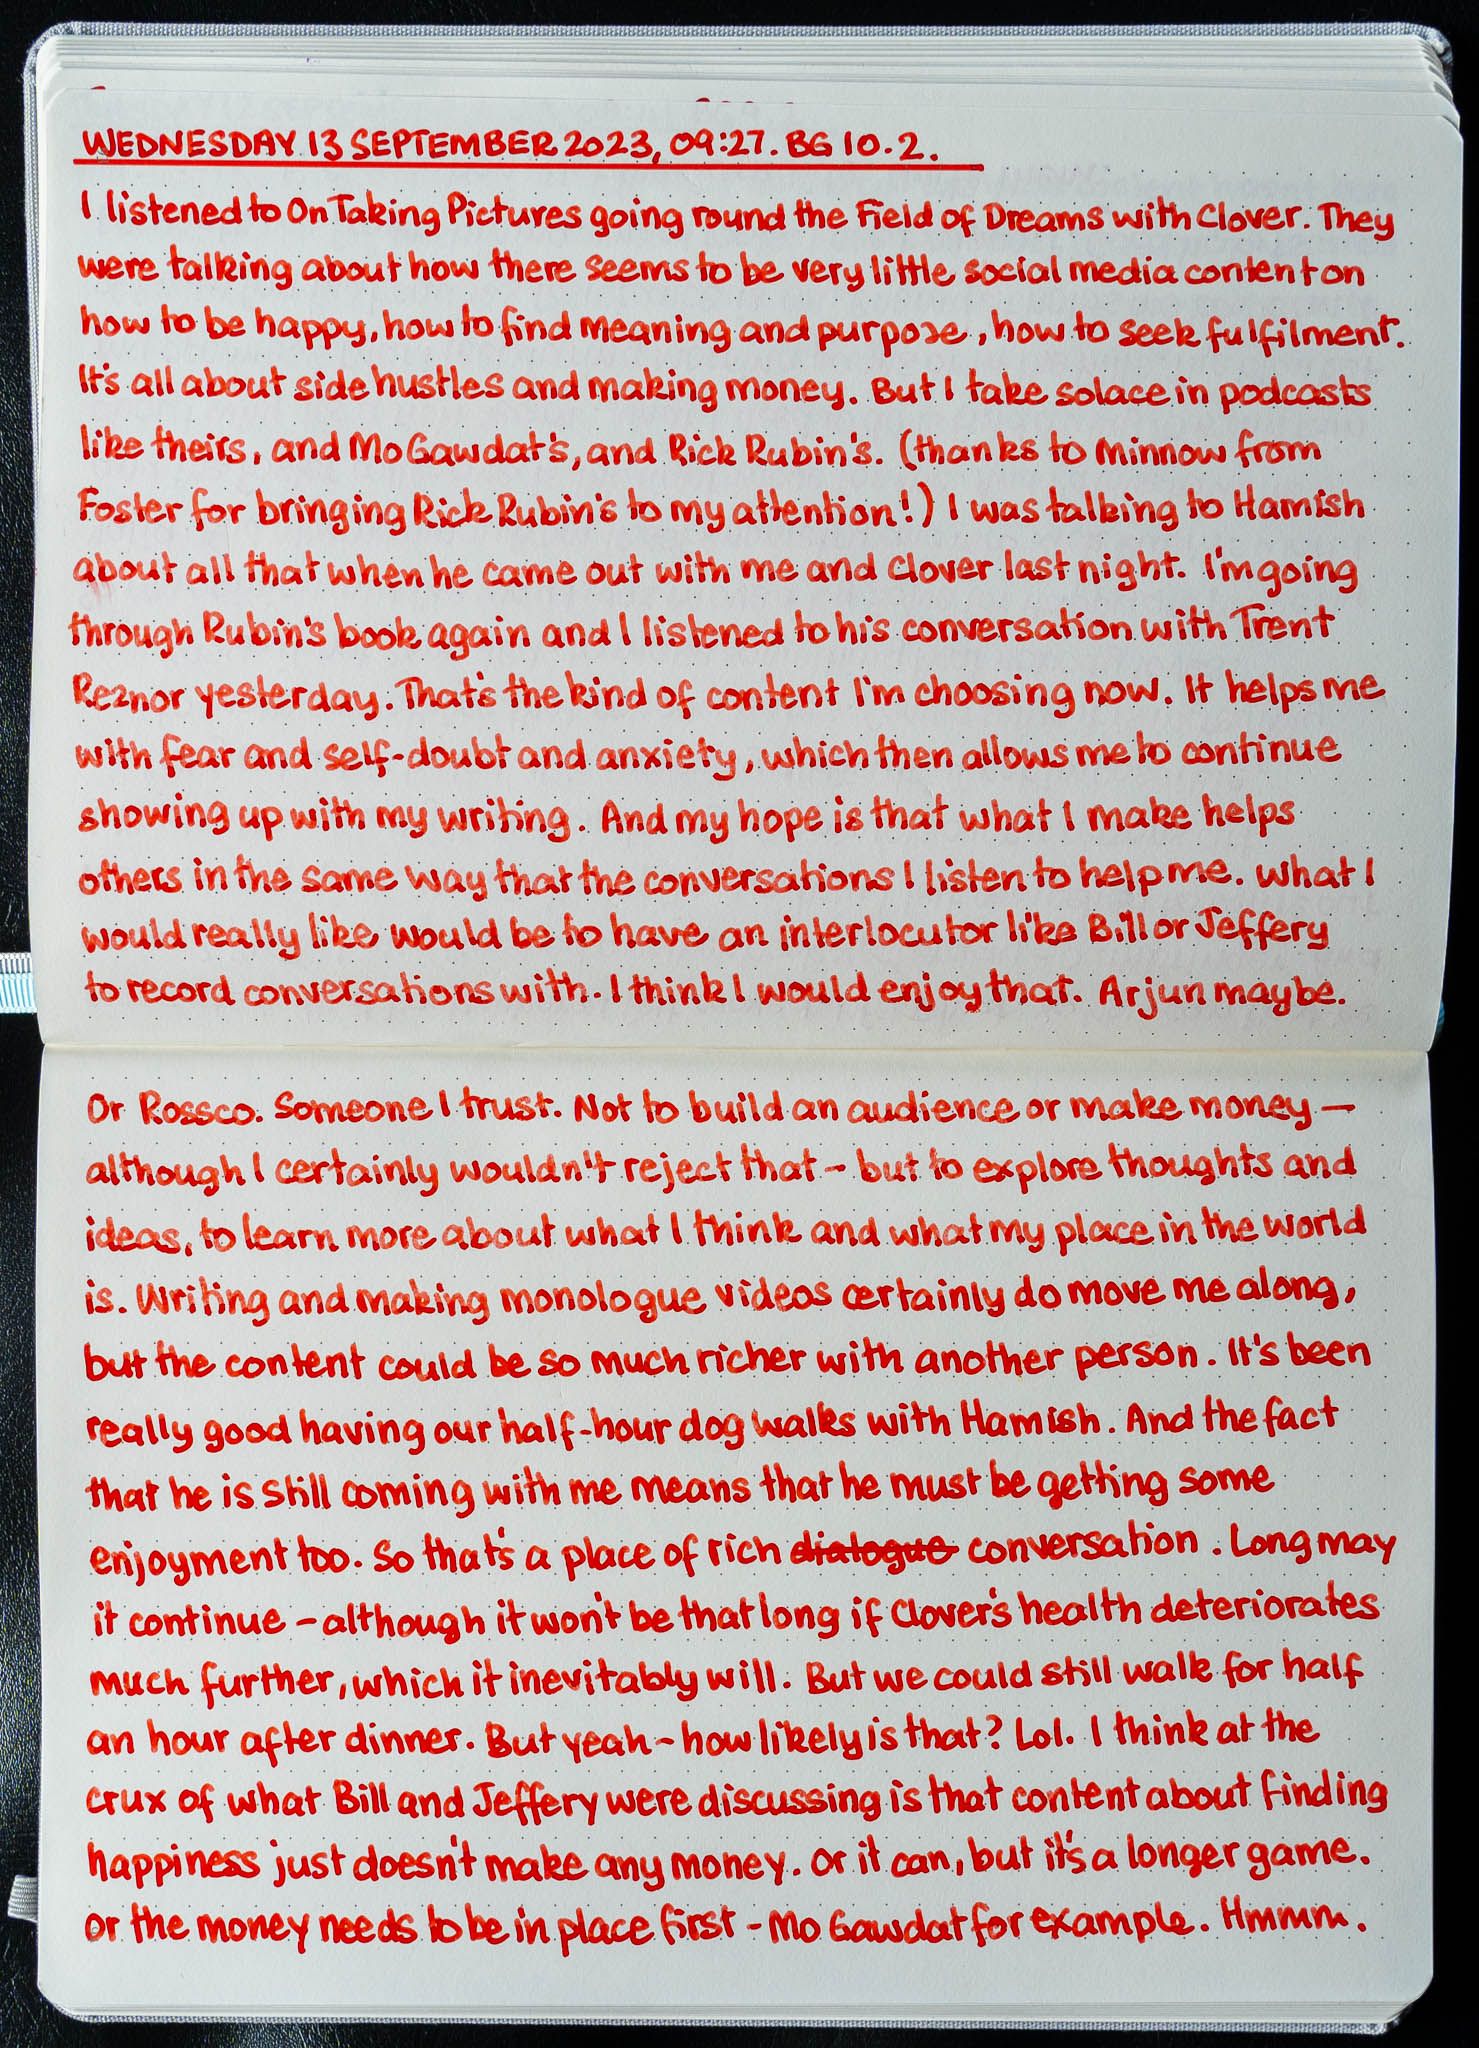 WEDNESDAY 13 SEPTEMBER 2023, 09:27. BG 10.2.
I listened to On Taking Pictures going round the Field of Dreams with Clover. They
were talking about how there seems to be very little social media content on
how to be happy, how to find meaning and purpose, how to seek fulfilment.
It's all about side hustles and making money. But I take solace in podcasts
like theirs, and Mo Gawdat's, and Rick Rubin's. (thanks to Minnow from
Foster for bringing Rick Rubin's to my attention!) I was talking to Hamish
about all that when he came out with me and Clover last night. I'm going
through Rubin's book again and I listened to his conversation with Trent
Reznor yesterday. That's the kind of content I'm choosing now. It helps me
with fear and self-doubt and anxiety, which then allows me to continue
showing up with my writing. And my hope is that what I make helps
others in the same way that the conversations I listen to help me. What I
would really like would be to have an interlocutor like Bill or Jeffery
to record conversations with. I think I would enjoy that. Arjun maybe.
Or Rossco. Someone I trust. Not to build an audience or make money —
although I certainly wouldn't reject that – but to explore thoughts and
ideas, to learn more about what I think and what my place in the world
is. Writing and making monologue videos certainly do move me along,
but the content could be so much richer with another person. It's been
really good having our half-hour dog walks with Hamish. And the fact
that he is still coming with me means that he must be getting some
enjoyment too. So that's a place of rich dialogue conversation. Long may
it continue – although it won't be that long if Clover's health deteriorates
much further, which it inevitably will. But we could still walk for half
an hour after dinner. But yeah – how likely is that? Lol. I think at the
crux of what Bill and Jeffery were discussing is that content about finding
happiness just doesn't make any money. Or it can, but it's a longer game.
Or the money needs to be in place first – Mo Gawdat for example. Hmmm.